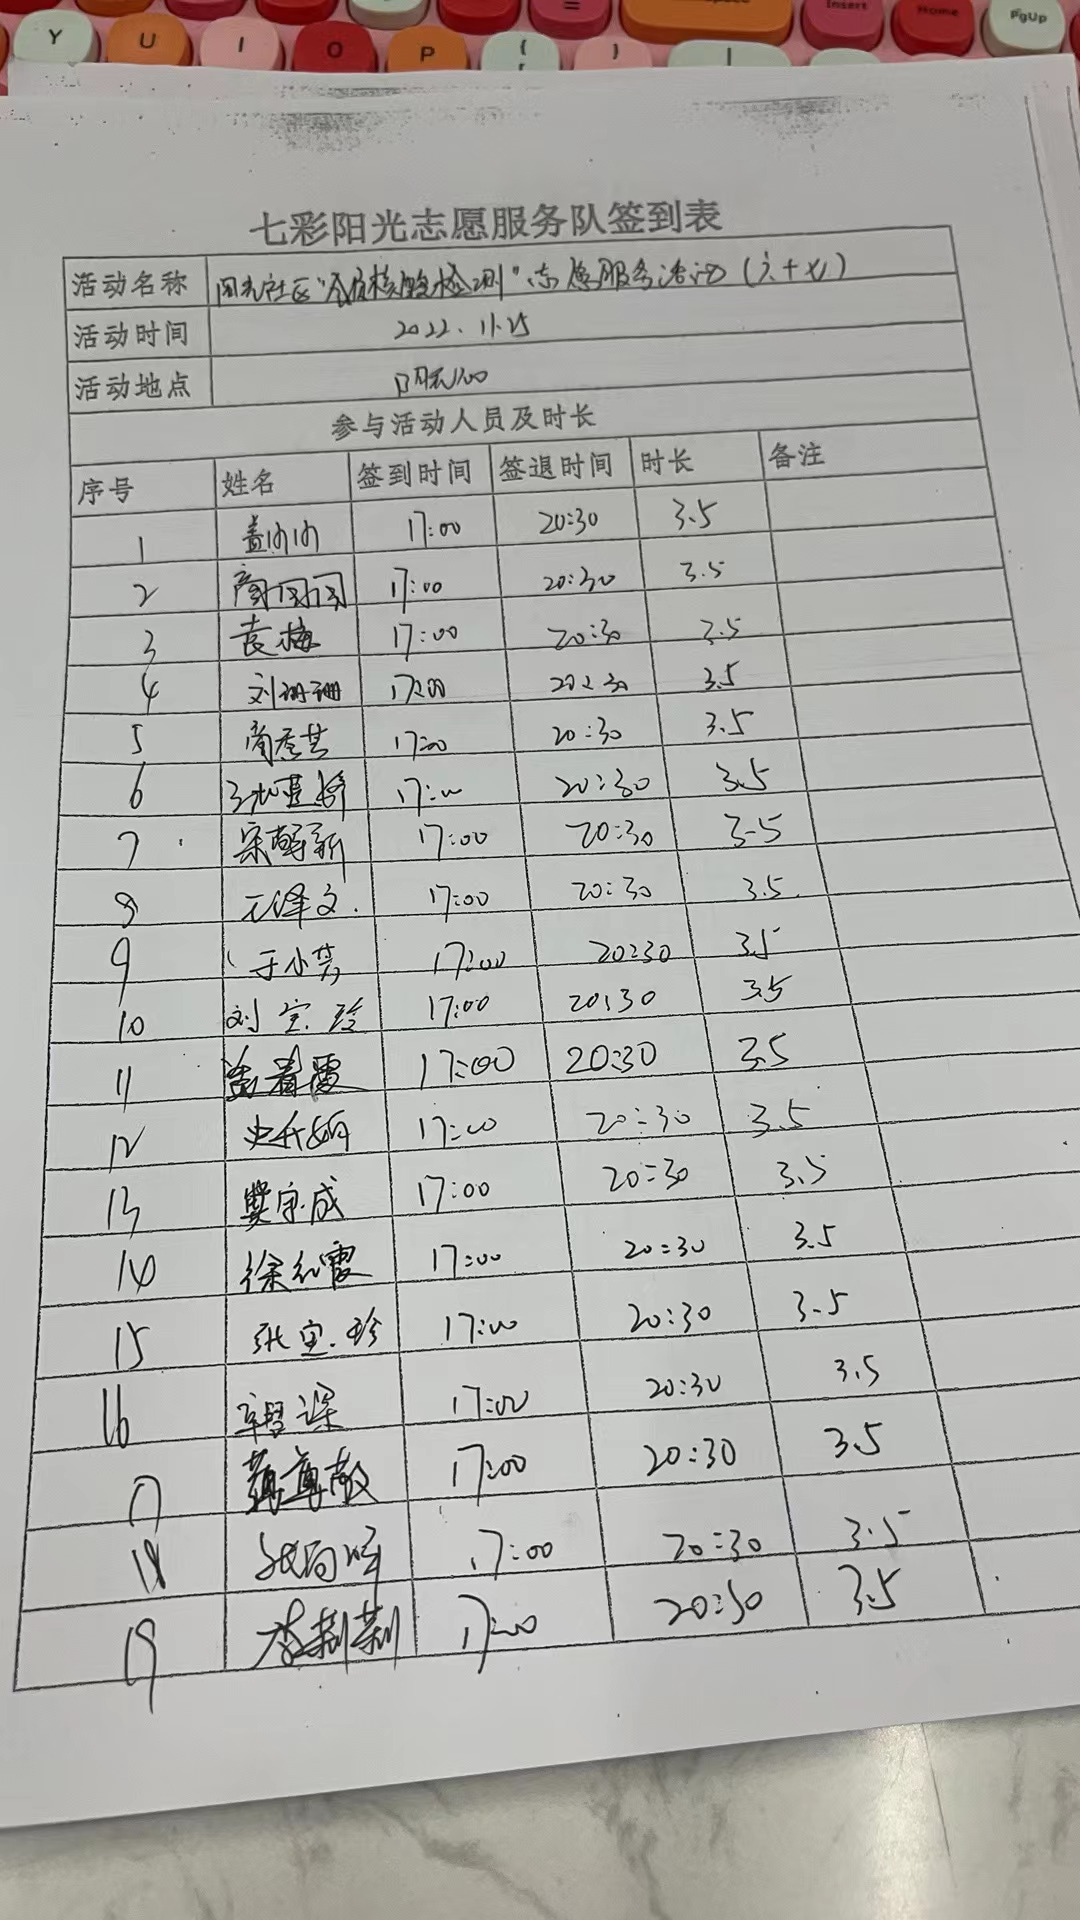 Y U I O P { [ } = | Insert Home PgUp
七彩阳光志愿服务队签到表
活动名称 阳光社区"全员核酸检测"志愿服务活动(六十七)
活动时间 2022.11.25
活动地点 阳光
参与活动人员及时长
序号 姓名 签到时间 签退时间 时长 备注
1 17:00 20:30 3.5
2 17:00 20:30 3.5
3 袁梅 17:00 20:30 3.5
4 刘珊珊 17:00 20:30 3.5
5 17:00 20:30 3.5
6 17:00 20:30 3.5
7 宋 新 17:00 20:30 3.5
8 王泽文 17:00 20:30 3.5
9 于小 17:00 20:30 3.5
10 刘宝玲 17:00 20:30 3.5
11 霞 17:00 20:30 3.5
12 史 17:00 20:30 3.5
13 樊宗成 17:00 20:30 3.5
14 徐红霞 17:00 20:30 3.5
15 张宝珍 17:00 20:30 3.5
16 17:00 20:30 3.5
17 尊敬 17:00 20:30 3.5
18 17:00 20:30 3.5
19 李莉莉 17:00 20:30 3.5